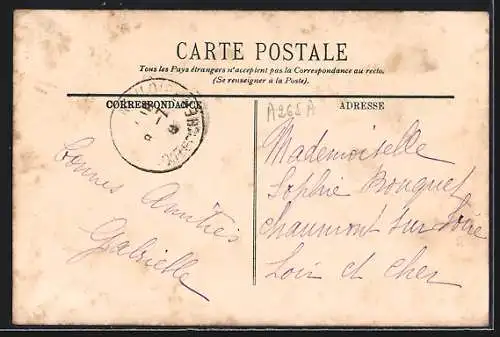 CARTE POSTALE
Tous les Pays étrangers n'acceptent pas la Correspondance au recto.
(Se renseigner à la Poste).
CORRESPONDANCE
Bonnes Amitiés
Gabrielle
A265A
ADRESSE
Mademoiselle
Sophie Bouquet
Chaumont sur Loire
Loir et Cher